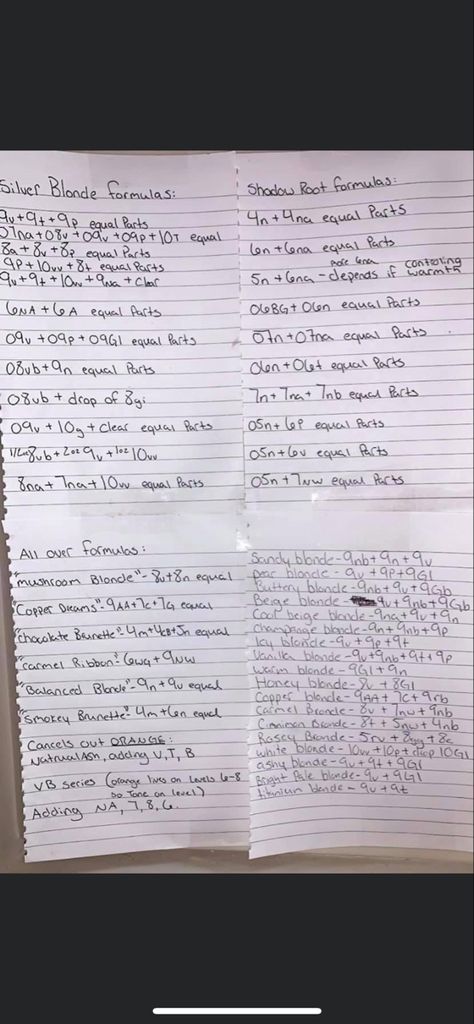 Silver Blonde formulas:
9v+9t+9p equal Parts
07na+08v+09v+09p+10T equal
8a+8v+8p equal Parts
9P+10vv+8t equal Parts
9v+9t+10vv+9na+clear
6NA+6A equal Parts
09v+09p+09GI equal Parts
08vb+9n equal Parts
08vb + drop of 8gi
09v+10g+clear equal Parts
8vb+2oz 9v+1oz 10vv
8na+7na+10vv equal Parts
Shadow Root formulas:
4n+4na equal Parts
6n+6na equal Parts
more 6na controling
5n+6na - depends if warmth
06BG+06n equal Parts
07n+07na equal Parts
06n+06t equal Parts
7n+7na+7nb equal Parts
05n+6p equal Parts
05n+6v equal Parts
05n+7NW equal Parts
All over formulas:
"mushroom Blonde"-8v+8n equal
"Copper Dreams"-9AA+7c+7G equal
"chocolate Brunette"-4m+4cB+5n equal
"carmel Ribbon"-6wg+9NW
"Balanced Blonde"-9n+9v equal
"Smokey Brunette"-4m+6n equal
Cancels out ORANGE:
Natrual Ash, adding V, T, B
VB series (orange lives on Levels 6-8
so Tone on level)
Adding NA, 7, 8, 6.
Sandy blonde-9nb+9n+9v
blonde-9v+9p+9GI
Buttery blonde-9nb+9v+9Gb
Beige blonde-9v+9nb+9Gb
Cool beige blonde-9na+9v+9n
Champange blonde-9n+9nb+9p
Icy blonde-9v+9p+9t
Vanilla blonde-9v+9nb+9t+9p
Warm blonde-9GI+9n
Honey blonde-8v+8GI
Copper blonde-9AA+7c+9rb
Carmel Bronde-8v+7nw+9nb
Cinnamon Bronde-8t+5nw+4nb
Rosey Bronde-5rv++8c
White blonde-10vv+10p+drop 10GI
ashy blonde-9v+9t+9GI
Bright Pale blonde-9v+9GI
titanium blonde-9v+9t